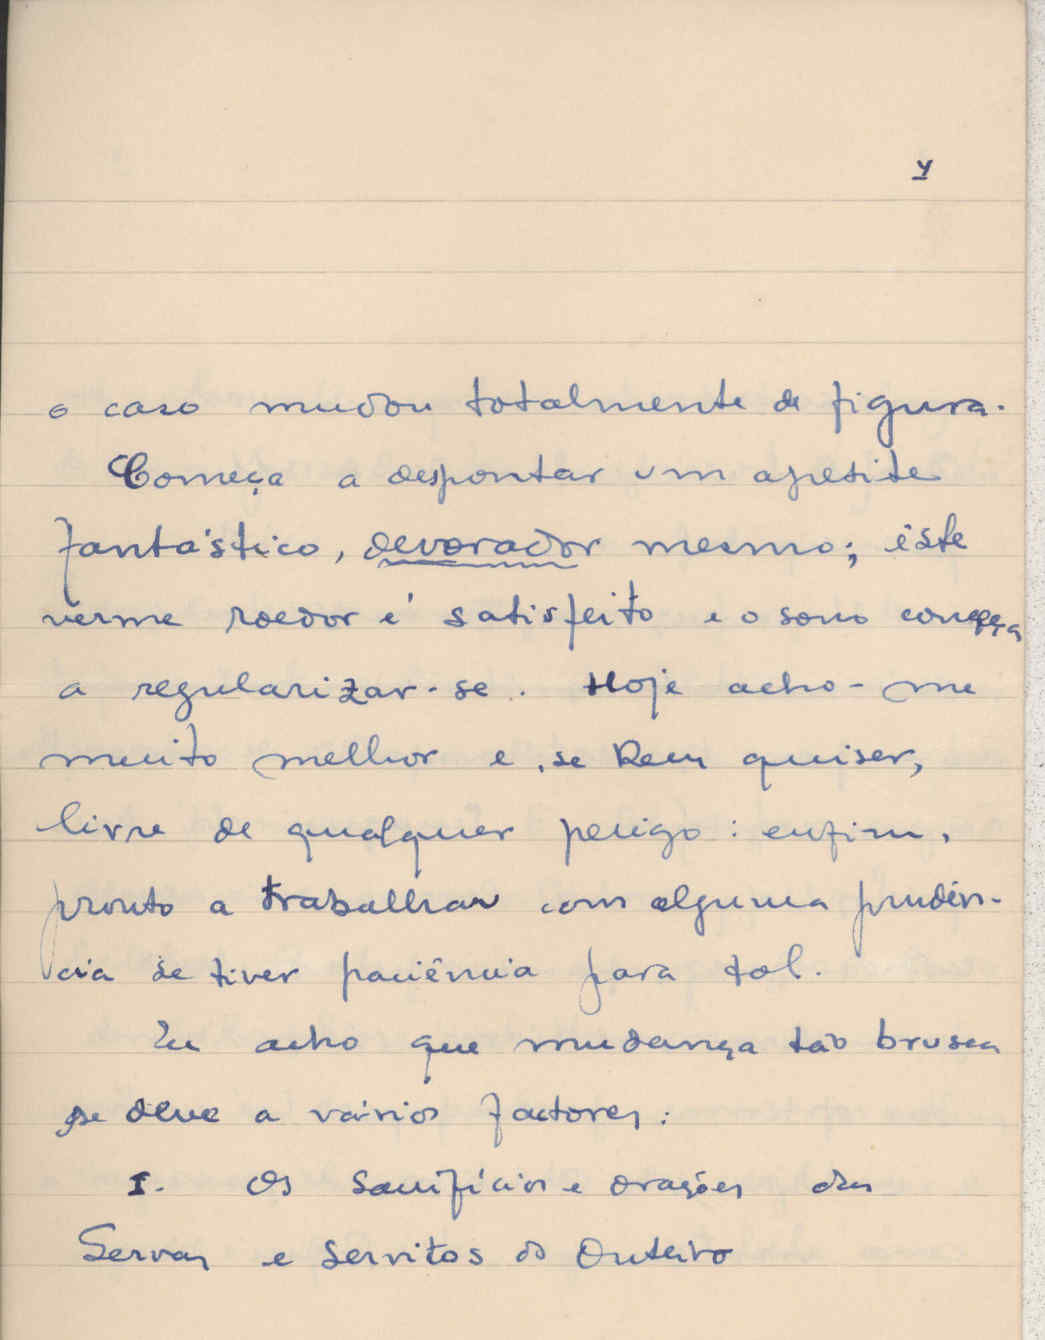 4
o caso mudou totalmente de figura.
Começa a despontar um apetite
fantástico, devorador mesmo; êste
verme roedor é satisfeito e o sono começa
a regularizar-se. Hoje acho-me
muito melhor e, se Deus quiser,
livre de qualquer perigo: enfim,
pronto a trabalhar com alguma prudên-
cia se tiver paciência para tal.
Eu acho que mudança tão brusca
se deve a vários factores:
I. Os sacrifícios e orações das
Servas e Servitos do Outeiro